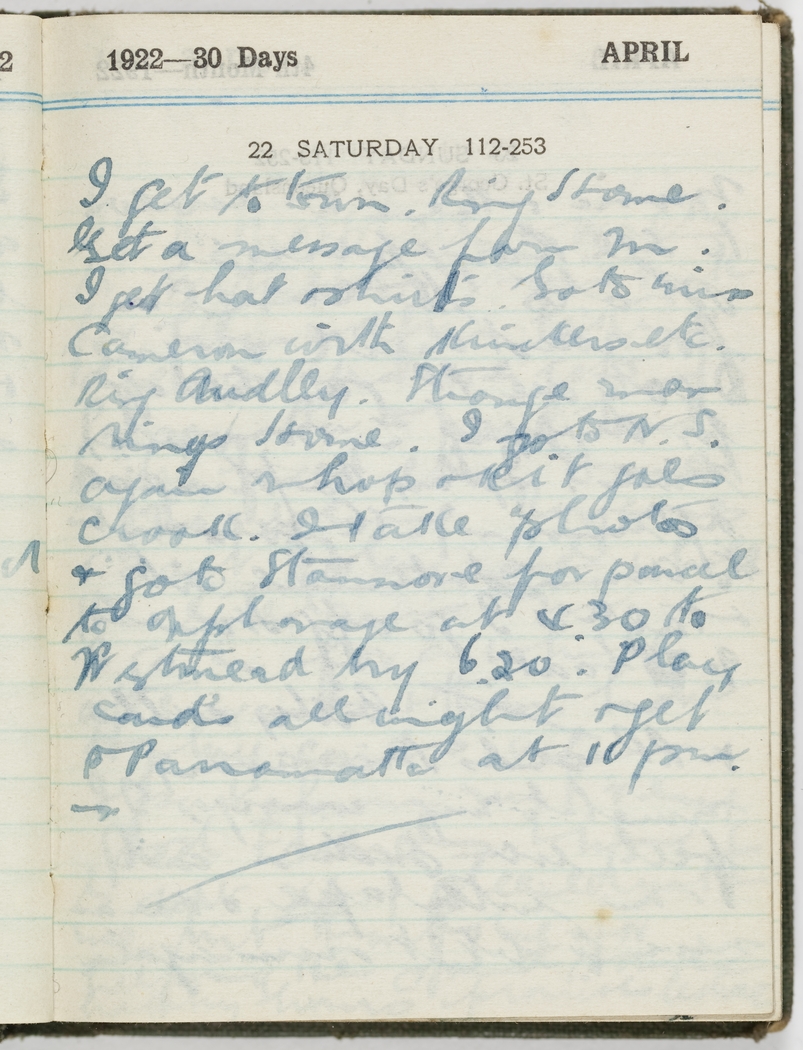 2
1922—30 Days
APRIL
22 SATURDAY 112-253
I get to town. Ring Home.
Get a message from M.
I get hat & shirts. Go to Miss
Cameron with etc.
Ring Audley. Strange man
rings Home. I go to N.S.
again & hop & it goes
crook. I take photos
& go to Stanmore for parcel
to orphanage at 430 to
Westmead by 6.20. Play
cards all night & get
to Parramatta at 11 pm.